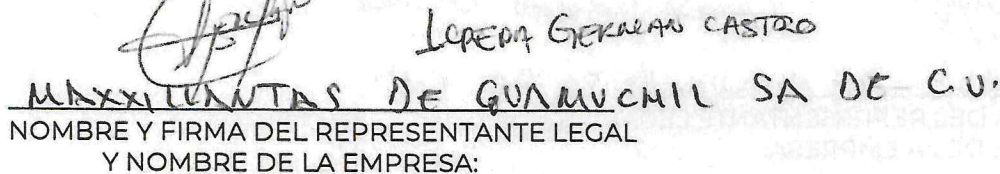 LOREDA GERMAN CASTRO
MAXXILLANTAS DE GUAMUCHIL SA DE C.V.
NOMBRE Y FIRMA DEL REPRESENTANTE LEGAL
Y NOMBRE DE LA EMPRESA: